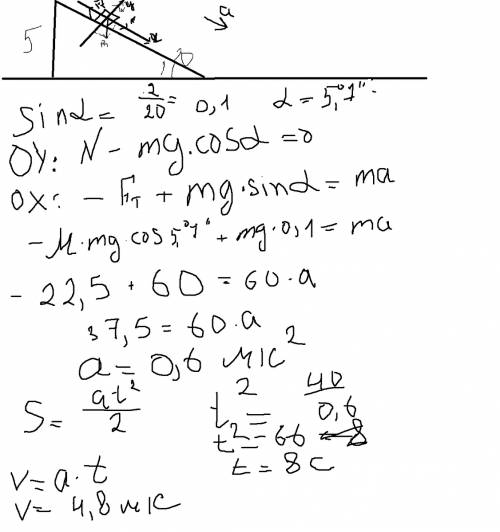 a
5
sin α = 2/20 = 0,1 α = 5,°7"
OY: N - mg·cosα = 0
OX: - Fт + mg·sinα = ma
- M·mg·cos 5,°7" + mg·0,1 = ma
- 22,5 + 60 = 60·a
37,5 = 60·a
a = 0,6 м/с²
S = at²/2 t² = 40/0,6
t² = 66
t = 8 с
v = a·t
v = 4,8 м/с